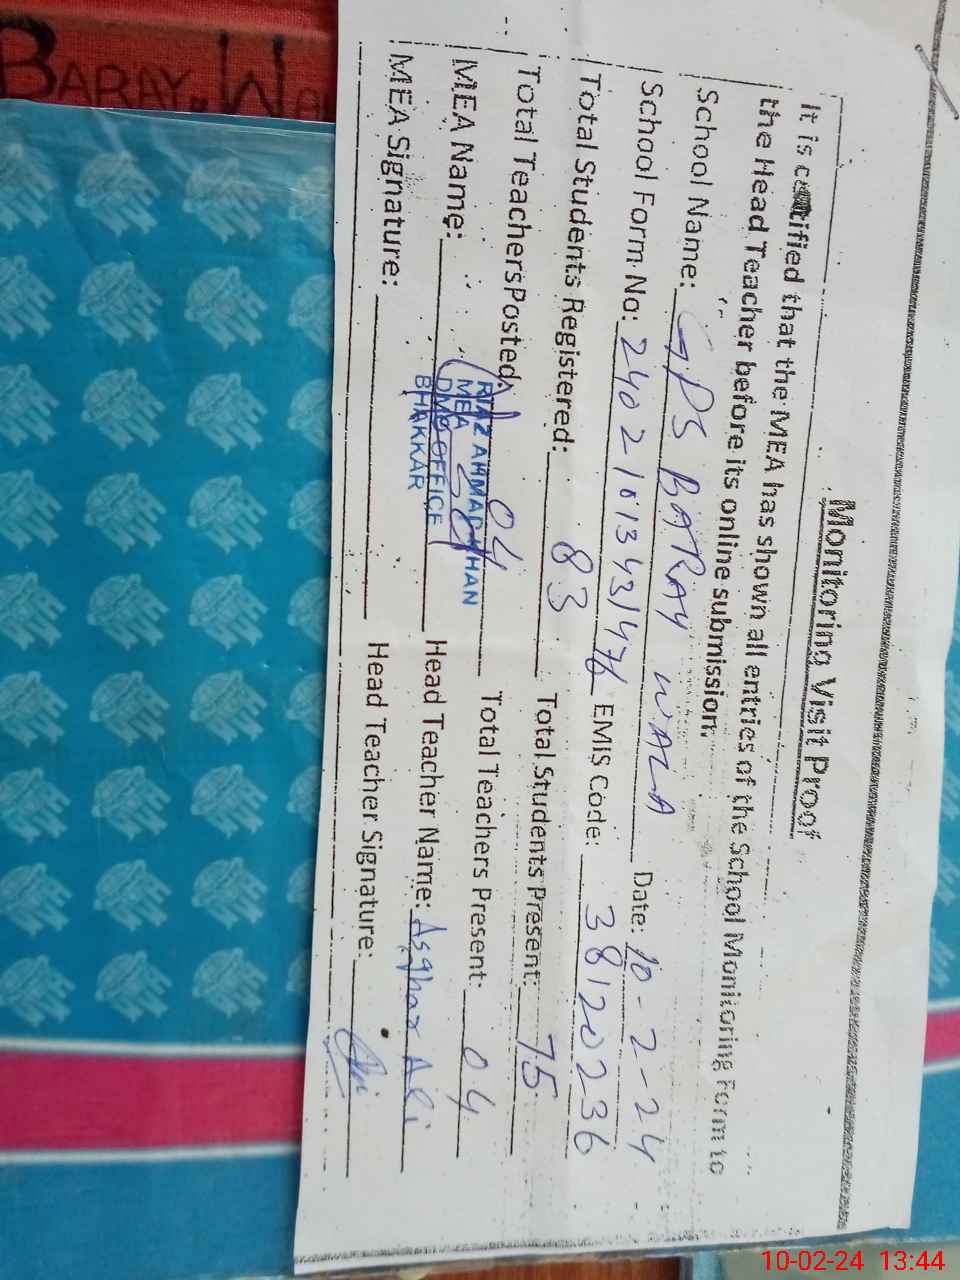 BARAY. WA
Monitoring Visit Proof
It is certified that the MEA has shown all entries of the School Monitoring Form to
the Head Teacher before its online submission.
School Name: GPS BARAY WALA Date: 10-2-24
School Form No: EMIS Code: 38120236
Total Students Registered: 83 Total Students Present: 75
Total Teachers Posted: 04 Total Teachers Present: 04
MEA Name: Head Teacher Name: Asghar Ali
RIAZ AHMAD KHAN
MEA
DMO OFFICE
BHAKKAR
MEA Signature: Head Teacher Signature:
10-02-24 13:44